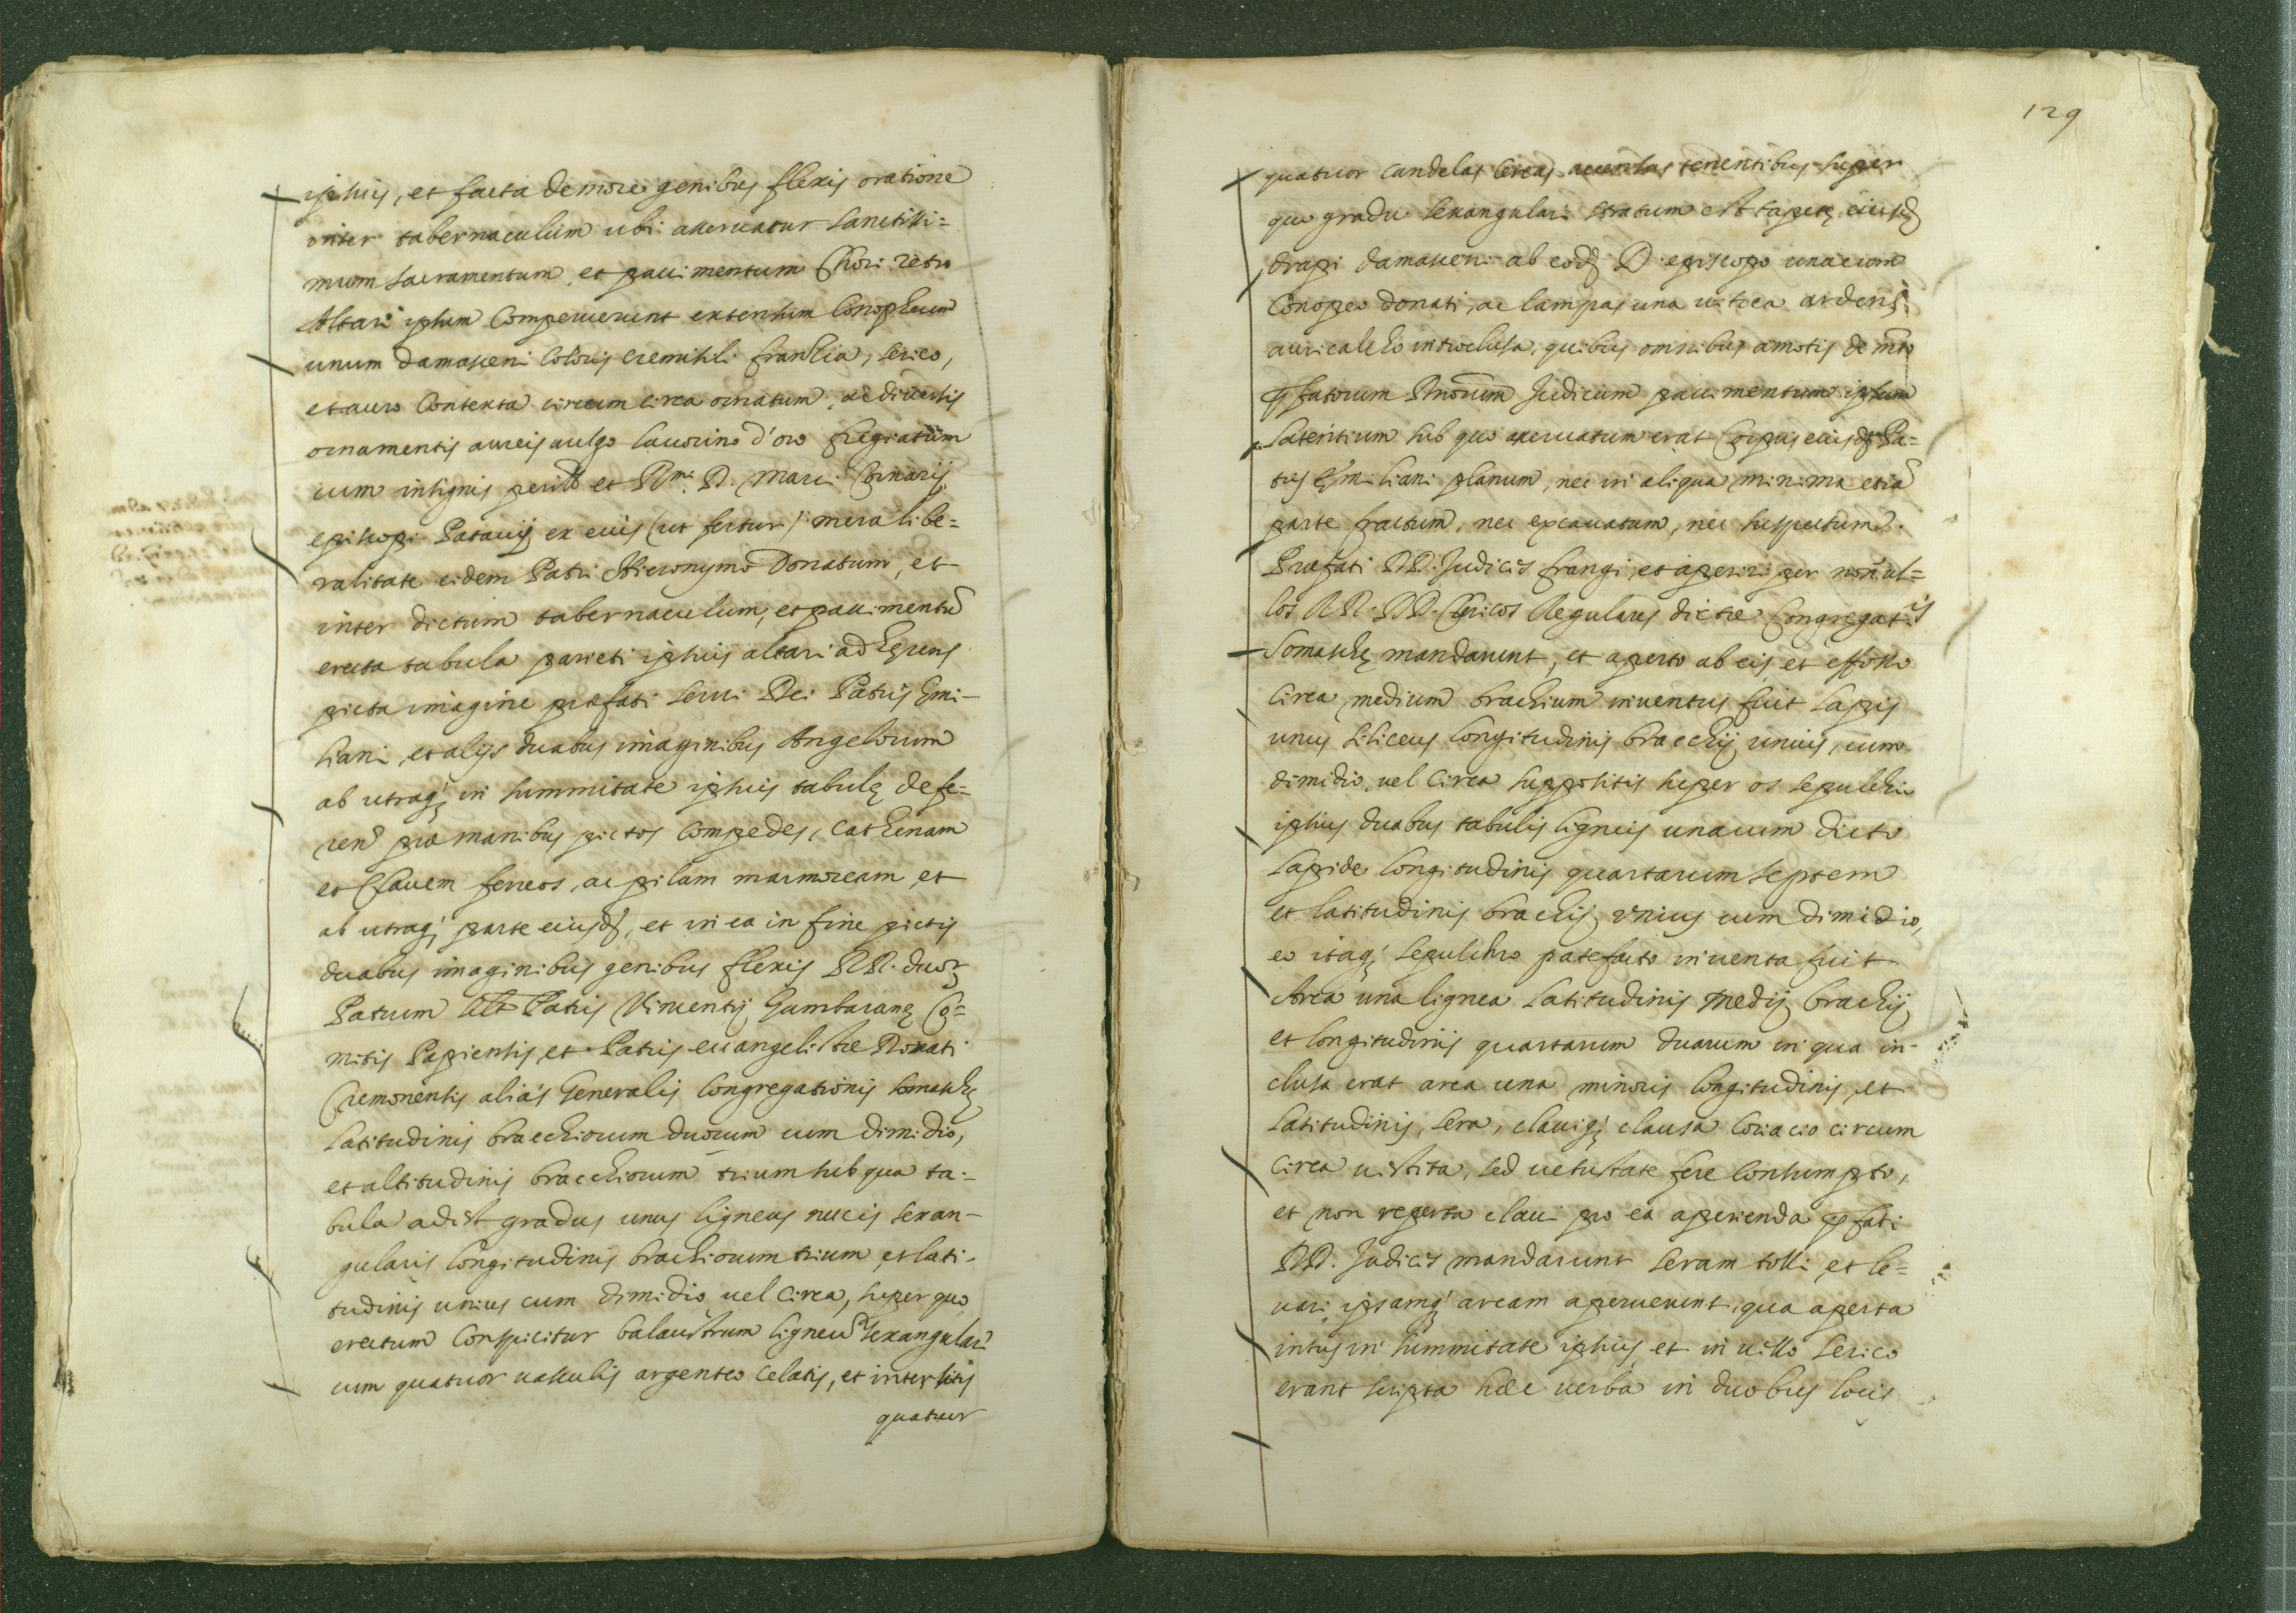 ipsius, et facta de more genibus flexis oratione
inter tabernaculum ubi asservatur sanctissi=
mum sacramentum, et pavimentum Chori retro
Altari ipsum Comperuerunt extensum Conopheum
unum damasceni Coloris cremisili franssia, serico,
et auro Contexta circum circa ornatum, ac diversis
ornamentis aureis vulgo lavorino d'oro fregiatum
cum insignis Rmi. D. Marci Cornarij
episcopi Patavij ex eius (ut fertur) mera libe=
ralitate eidem Patri Hieronymo Donatum, et
inter dictum tabernaculum, et pavimentū
erecta tabula parieti ipsius altari adherens
picta imagine præfati servi Dei Patris Emi-
liani, et alijs duabus imaginibus Angelorum
ab utraq; in summitate ipsius tabulę defe=
ren̄ præ manibus pictos Compedes, Cathenam
et Clavem ferreos, ac pilam marmoream, et
ab utraq; parte eiusd, et in ea in fine pictis
duabus imaginibus genibus flexis RR. duor
Patrum Patris Vincentij Gambaranę Co=
mitis Papiensis, et Patris evangelistæ Dorati
Cremonensis aliàs Generalis Congregationis Somaschę
latitudinis bracchiorum duorum cum dimidio,
et altitudinis bracchiorum trium sub qua ta=
bula adest gradus unus ligneus nucis sexan-
gularis longitudinis brachiorum trium, et lati-
tudinis unius cum dimidio vel circa, super quo
erectum Conspicitur balaustrum ligneū sexangulari
cum quatuor vasculis argenteo celatis, et intersitis
quatuor
129
quatuor candelas cereas accensas tenentibus super
quo gradu sexangulari stratum est tapetę eiusd
drapi damasceni ab eod D. episcopo una cum
Conopeo donati, ac lampas una vitrea ardens
auricalcho introclusa, quibus omnibus amotis de mto
pfatorum Dnorum Judicum pavimentum ipsum
lateritium sub quo asservatum erat Corpus eiusd Pa=
tris Emiliani planum, nec in aliqua minima etiā
parte fractum, nec excavatum, nec suspectum.
Præfati DD. Judices frangi, et aperiri per nonul=
los RR. DD. Clericos Regulares dictæ Congregatis
Somaschę mandarunt, et aperto ab eis, et effosso
circa medium brachium inventus fuit lapis
unus siliceus longitudinis bracchij unius, cum
dimidio, vel circa suppositis super os sepulchri
ipsius duabus tabulis ligneis una cum dicto
lapide longitudinis quartarum septem
et latitudinis brachij unius cum dimidio,
eo itaq; sepulchro patefacto inventa fuit
Arca una lignea latitudinis medij brachij
et longitudinis quartarum duarum in qua in-
clusa erat arca una minoris longitudinis, et
latitudinis, sera, claviq; clausa coriaceo circum
circa vestita, sed vetustate fere consumpto,
et non reperta clavi pro ea aperienda pfati
DD. Judices mandarunt seram tolli, et le=
vari, ipsamq; arcam aperuerunt, qua aperta
intus in summitate ipsius et in villo serico
erant scripta hæc verba in duobus locis